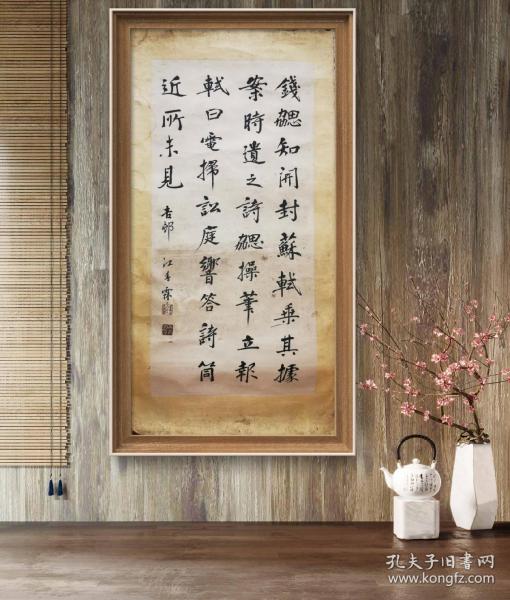 錢勰知開封蘇軾乗其據
案時遺之詩勰操筆立報
軾曰電掃訟庭響答詩筒
近所未見
杏邨 江春霖
孔夫子旧书网
www.kongfz.com